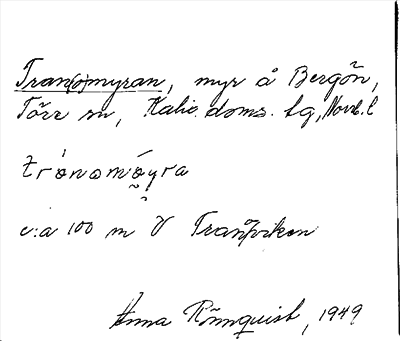 Tran(ö)myran, myr å Bergön,
Töre sn, Kalix doms. tg, Norrb. l
trǿnomǿyra
c:a 100 m V Tranöviken
Anna Rönnquist, 1949